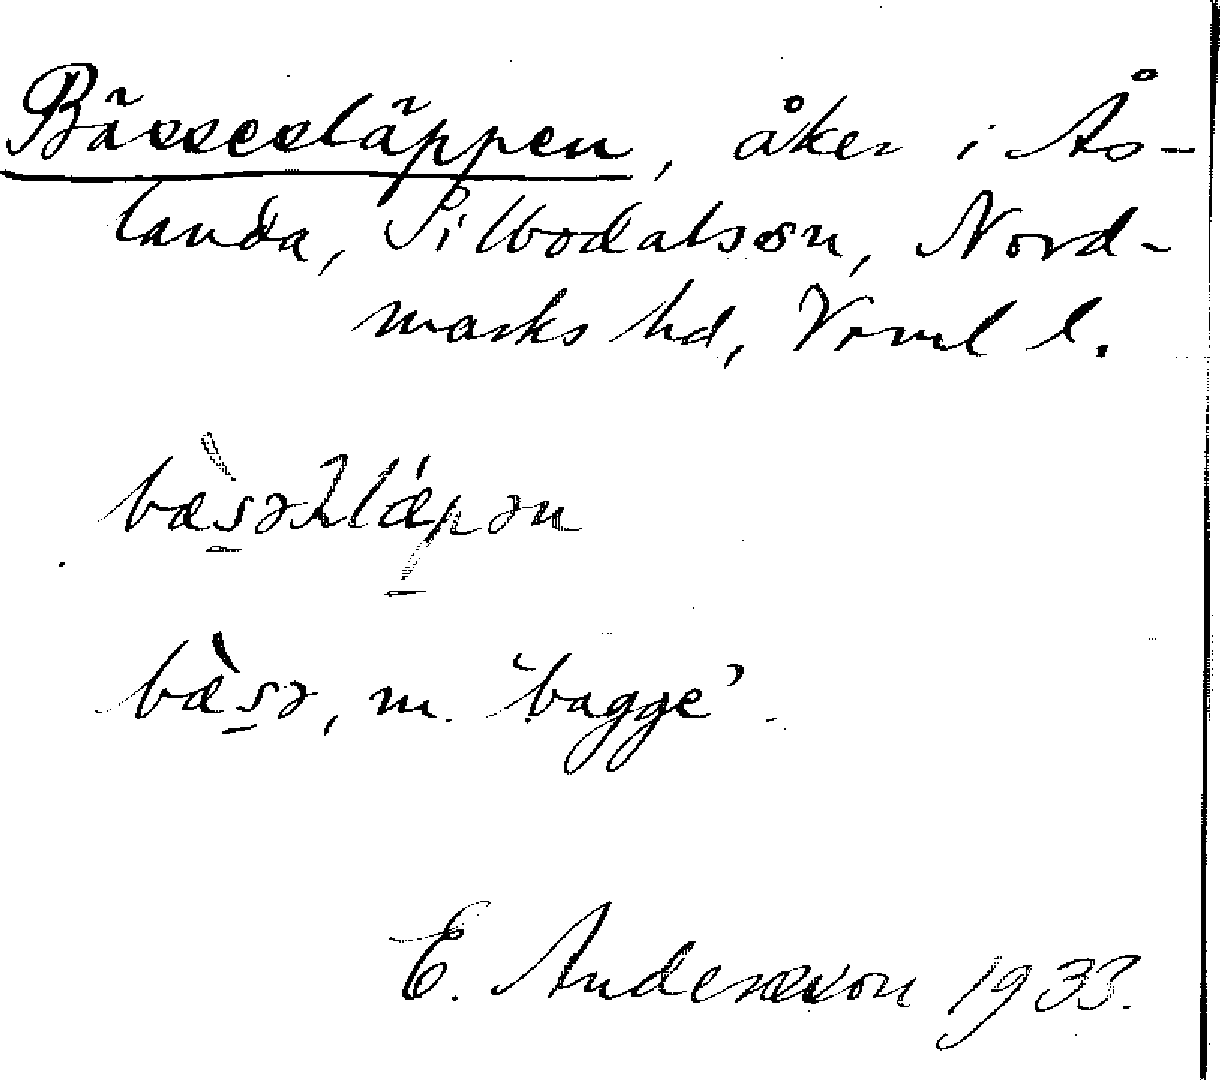 Bässesläppen, åker i Ås-
landa, Silbodalssn, Nord-
marks hd, Vrml l.
bæ̀səʃlǽpən
bæ̀sə, m. 'bagge'.
E. Andersson 1933.